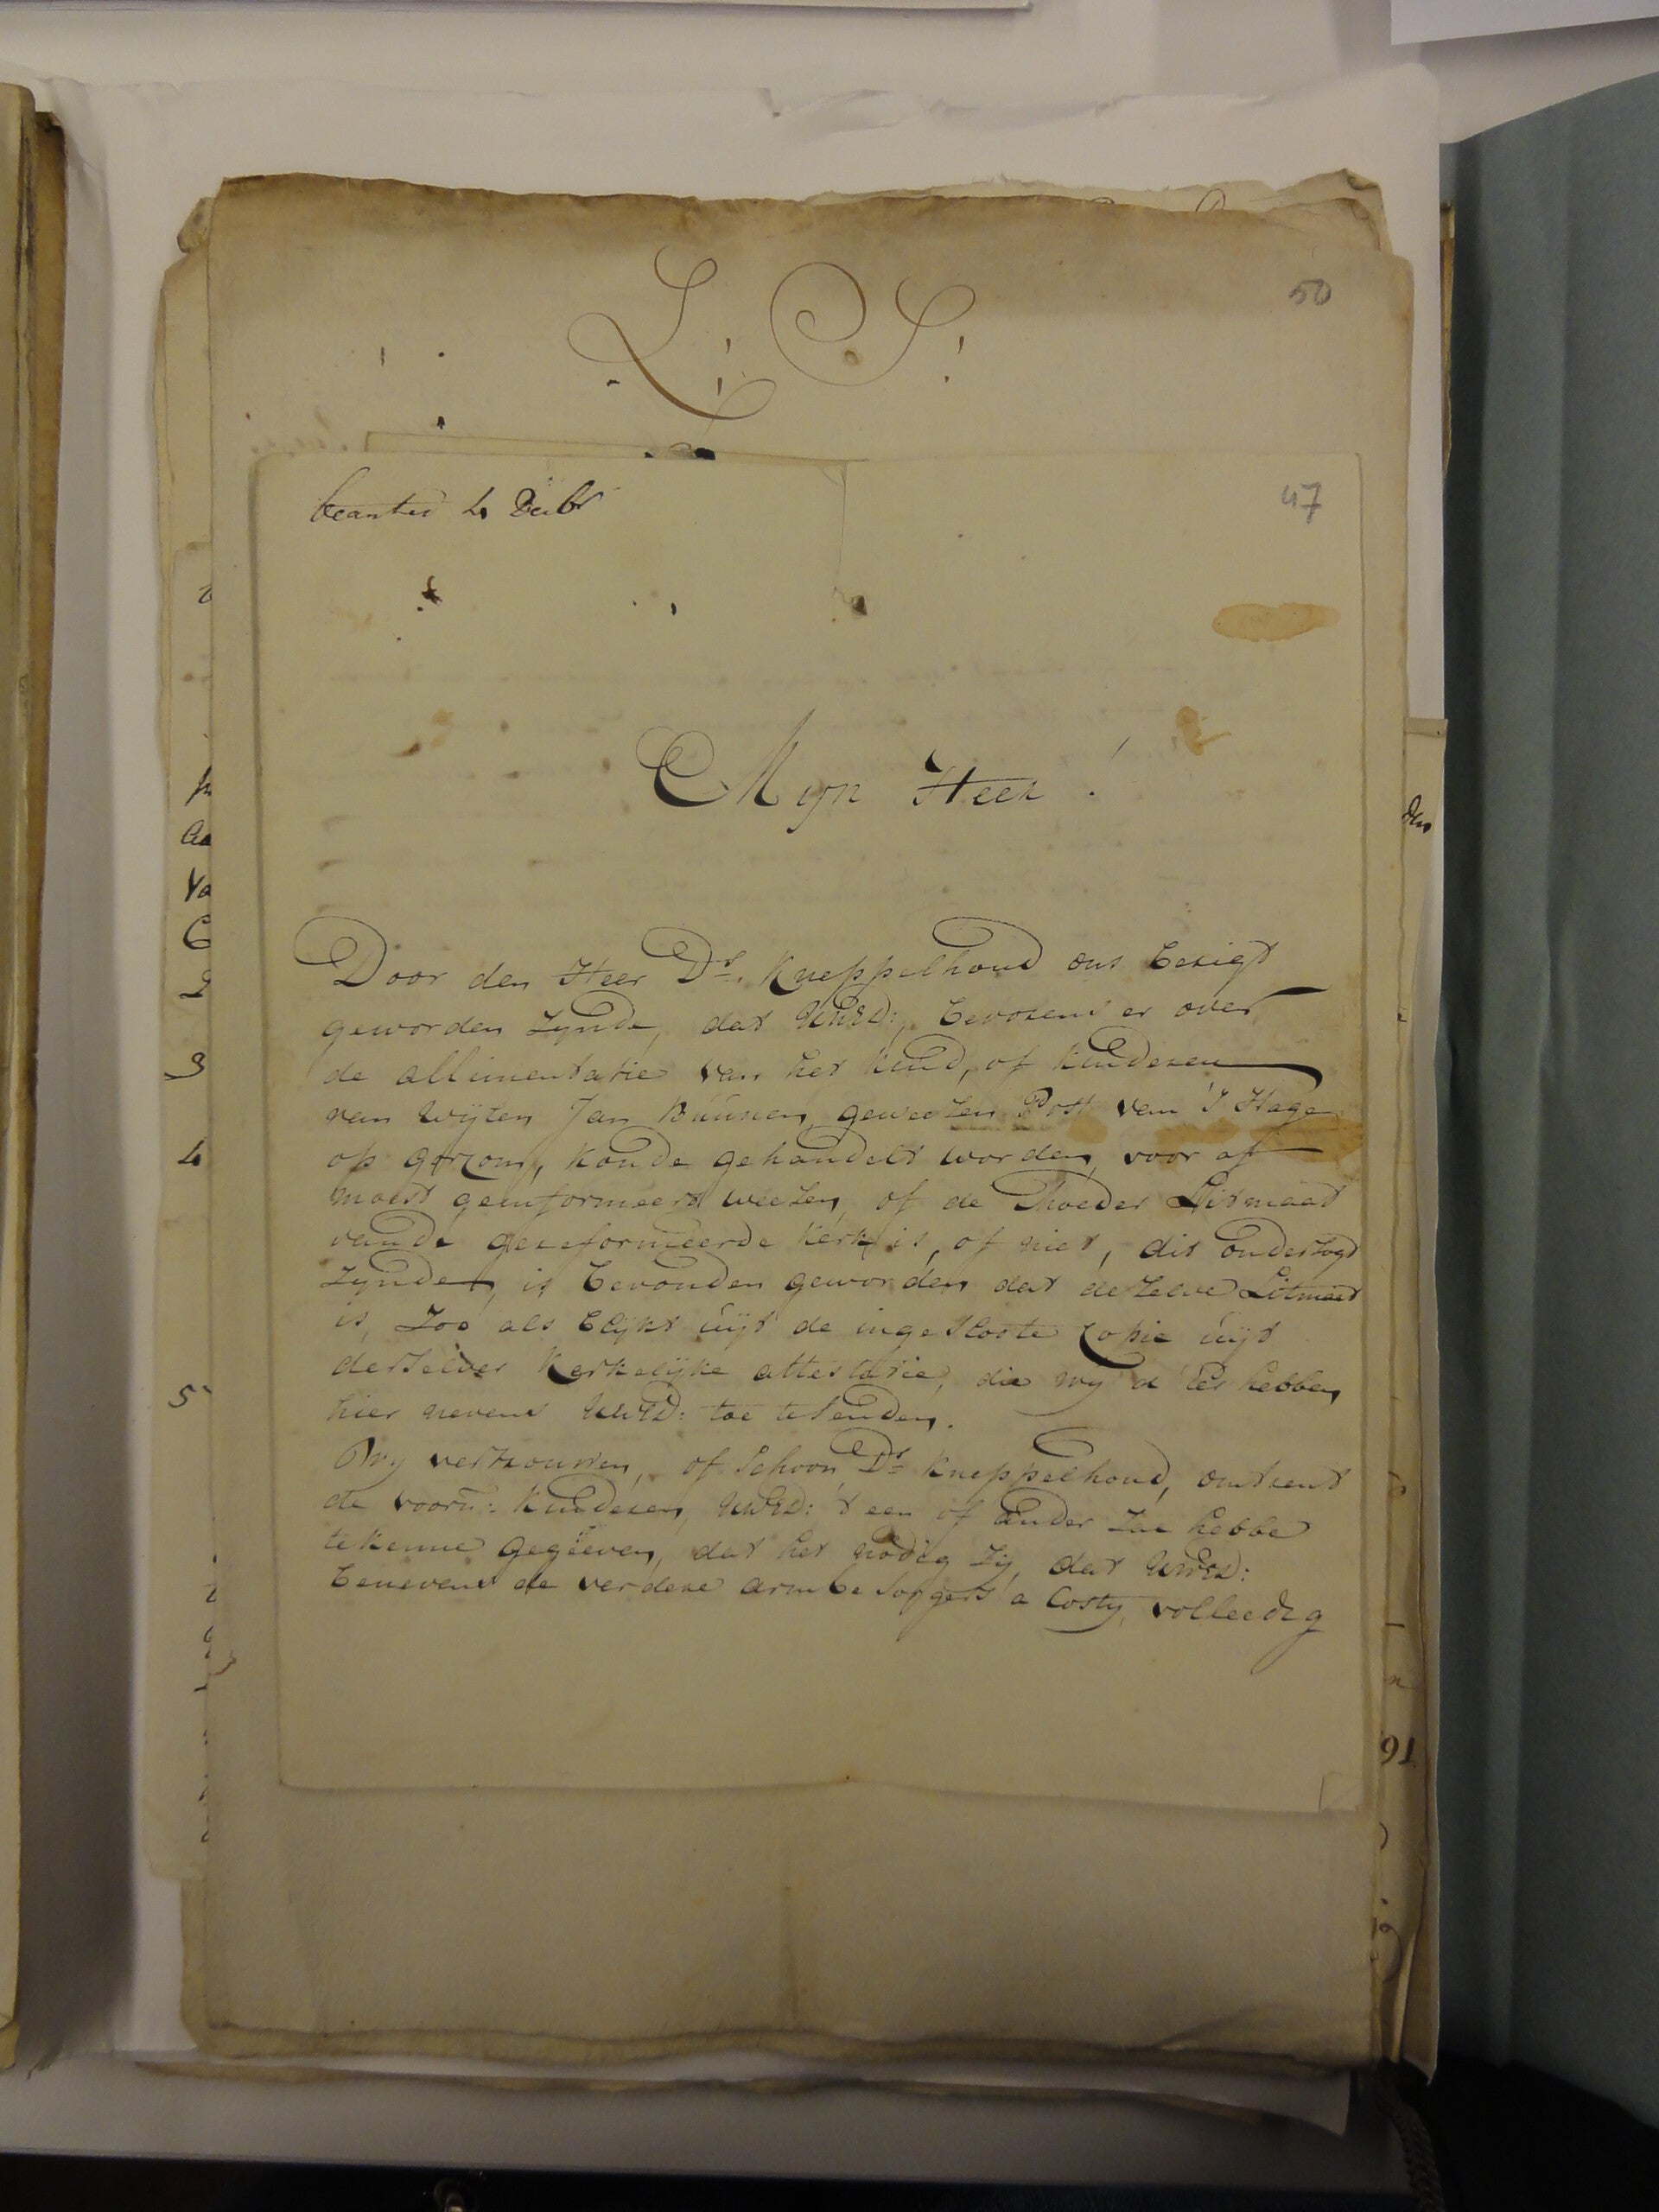 50
L: S:
47
beantw 4 Decbr
Mijn Heer!
Door den Heer Dr. Kneppelhoud ons berigt
geworden zynde, dat UWED:, bevorens er over
de allimentatie van het kind, of kinderen
van wijlen Jan Kuunen, geweezen Post van 's Hage
op gorcom, konde gehandelt worden, voor af
moest geinformeert weezen, of de Moeder Litmaat
van de gereformeerde kerk is, of niet, dit ondersogt
zynde, is bevonden geworden dat dezelve Litmaat
is, zoo als blijkt uijt de ingesloote Copie uijt
derselver Kerkelijke attestatie, die wy d' Eer hebben
hier nevens UWED: toe te senden.
Wy vertrouwen, of schoon Dr Kneppelhoud, omtrent
de voorn: kinderen, UWED: 't een of ander zal hebbe
te kenne gegeeven, dat het nodig zij, dat UWED:
benevens de verdere armbesorgers a Costy, volleedig
3
4
5